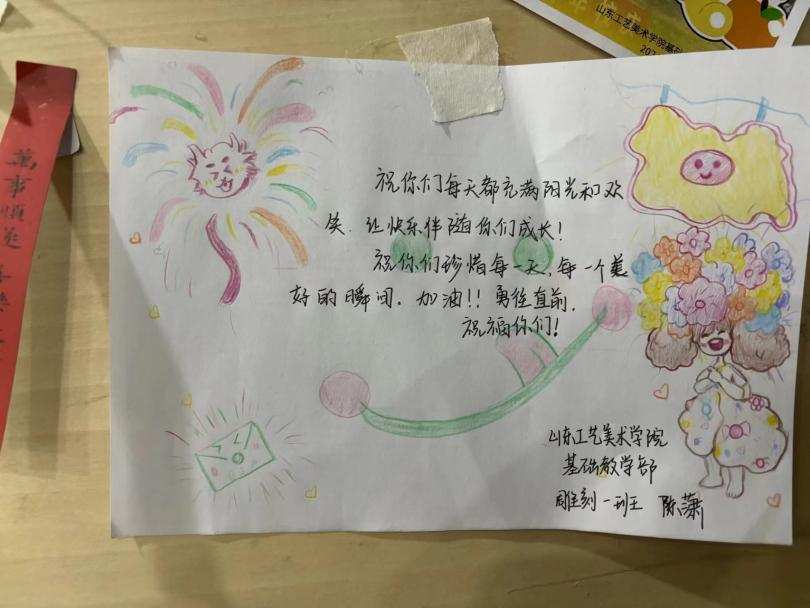 山东工艺美术学院基础
202
萬事順遂
祝你们每天都充满阳光和欢
笑.让快乐伴随你们成长!
祝你们珍惜每一天,每一个美
好的瞬间.加油!!勇往直前.
祝福你们!
山东工艺美术学院
基础教学部
雕刻一班 陈潇